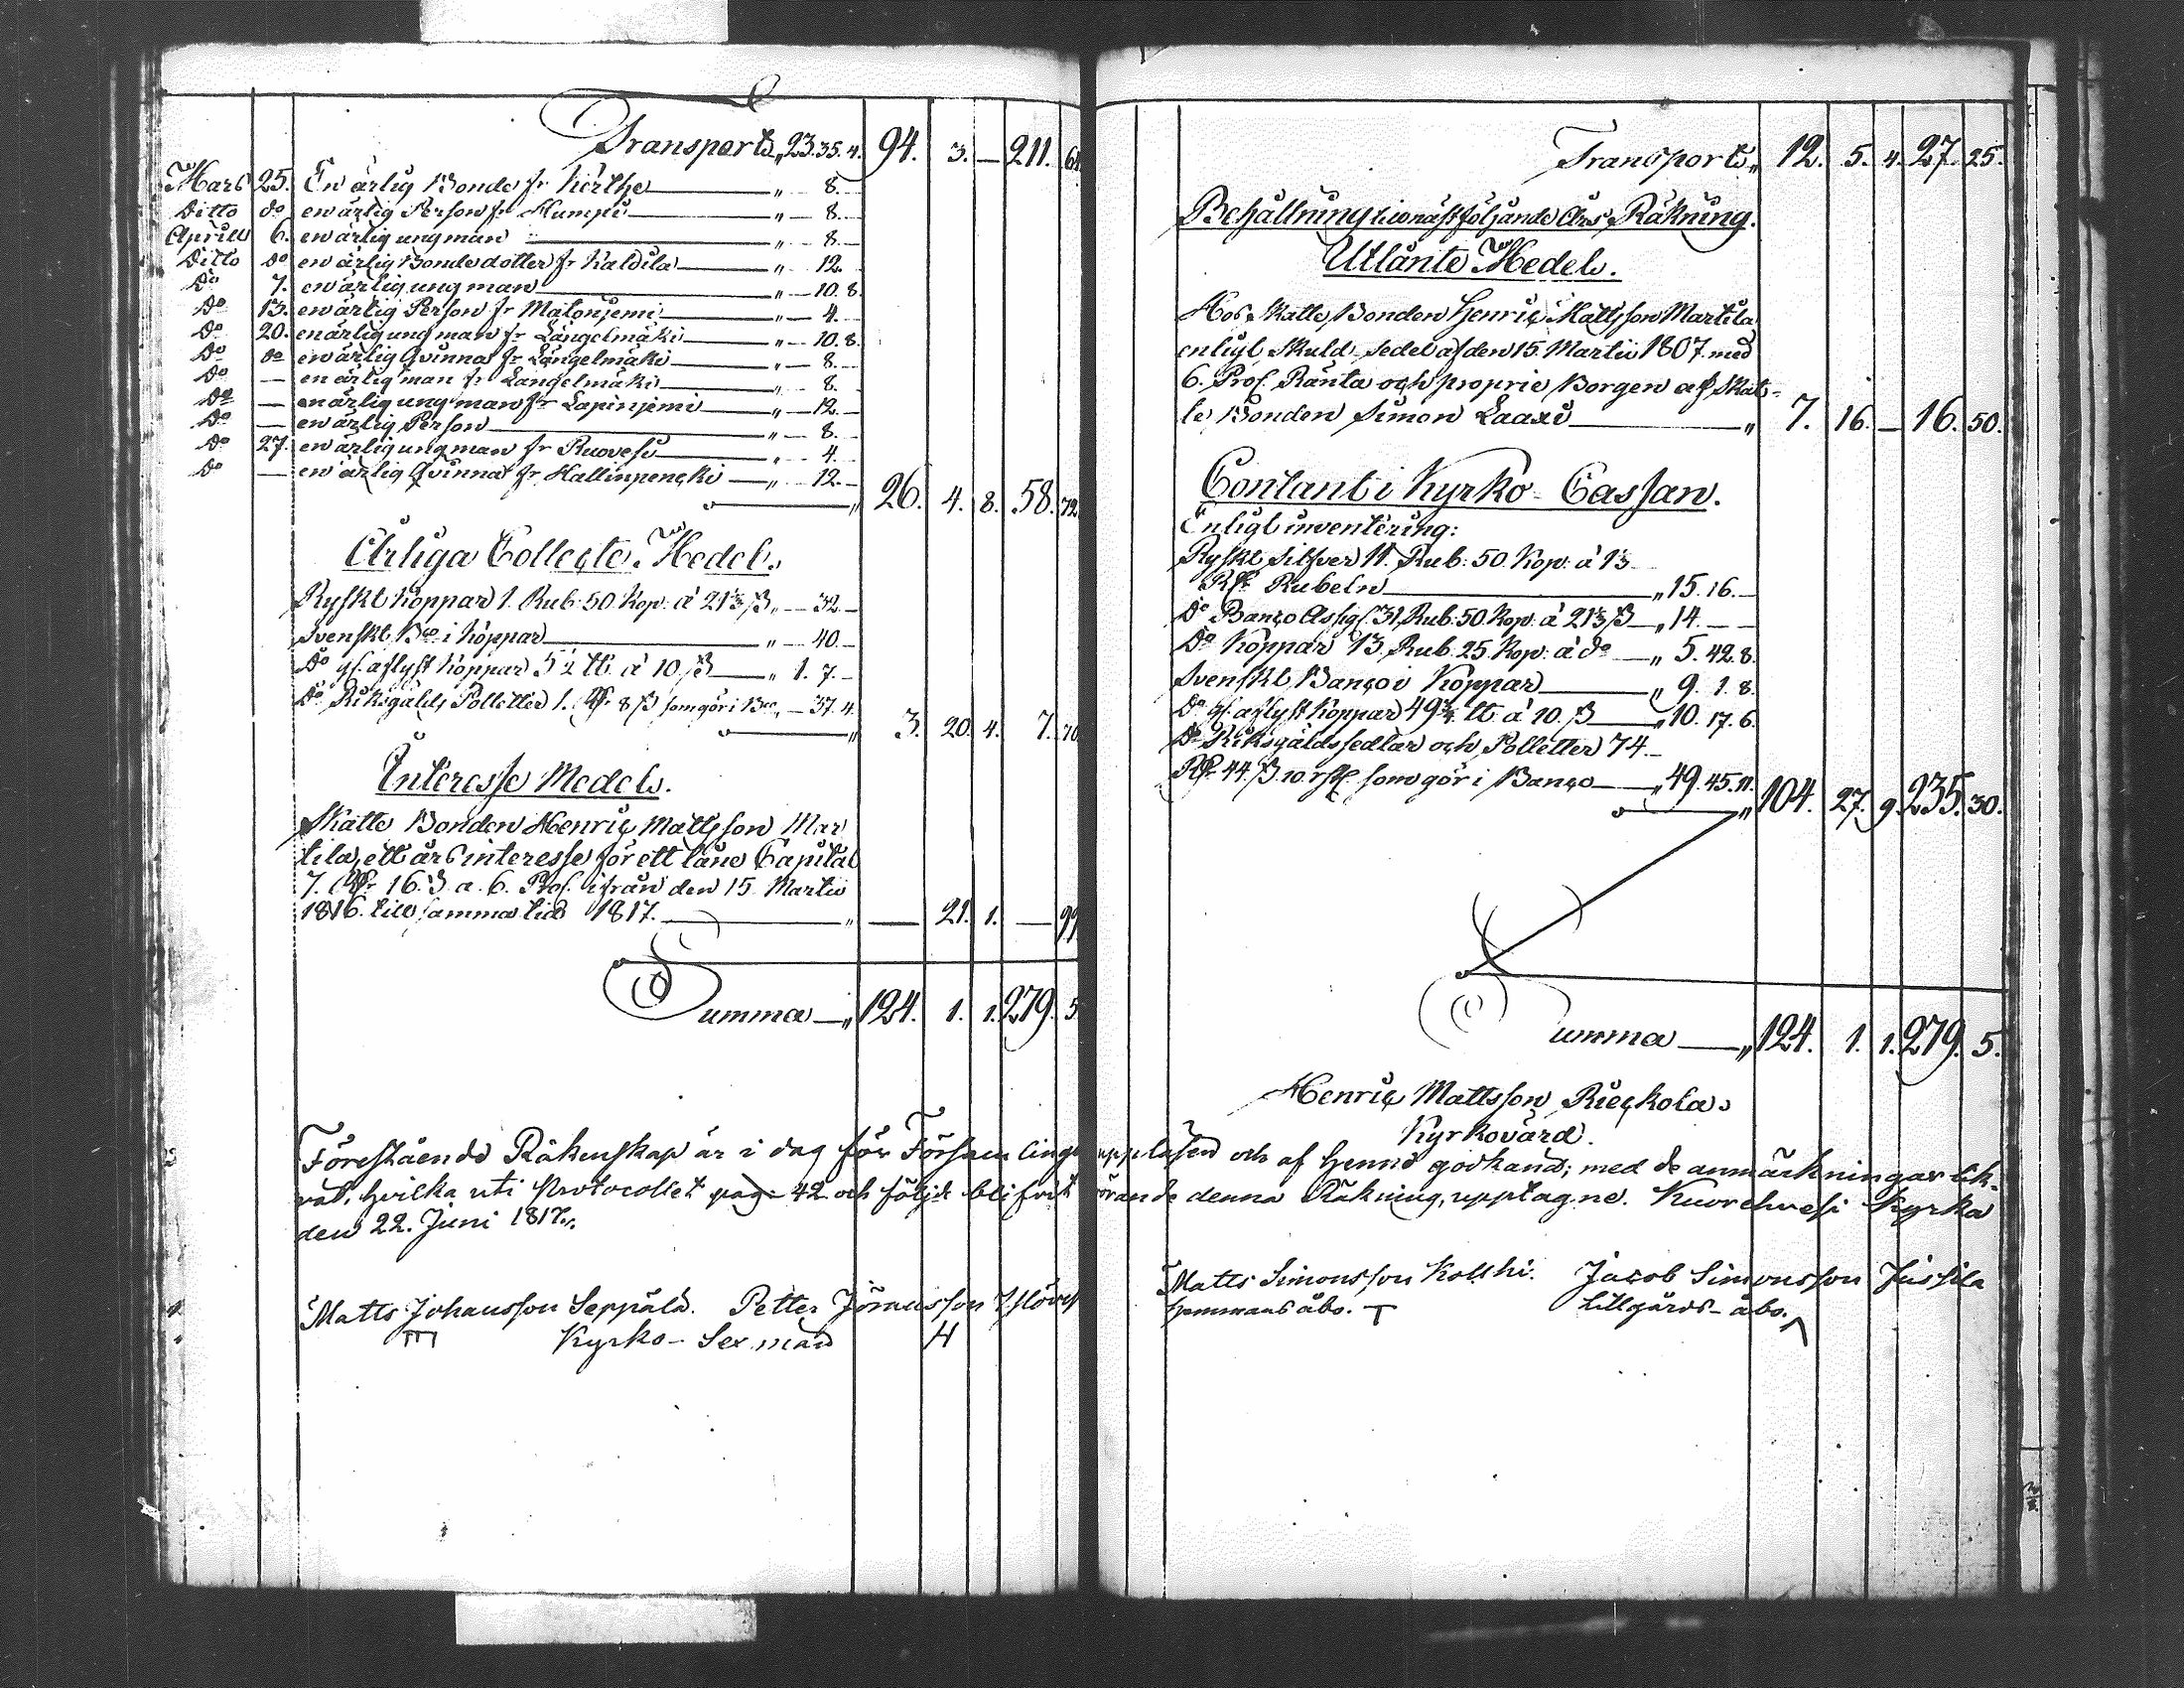 Transport „ 23. 35. 4. 94. 3. — 211. 64
Mars 25. En ärlig Bonde fr Kerthe — „ — 8. —
Ditto do en ärlig Person fr — „ — 8. —
Aprill 6. en ärlig ung man — „ — 8. —
Ditto do en ärlig Bondedotter fr Kaldila — „ — 12.
Do 7. en ärlig ung man — „ — 10. 8.
Do 13. en ärlig Person fr — „ — 4. —
Do 20. en ärlig ung man fr Längelmäki — „ — 10. 8.
Do do en ärlig Qvinna fr Längelmäki — „ — 8. —
Do — en ärlig man fr Längelmäki — „ — 8. —
Do — en ärlig ung man fr Lapinjemi — „ — 12. —
Do — en ärlig Person — „ — 8. —
Do 27. en ärlig ung man fr Ruovesi — „ — 4. —
Do — en ärlig Qvinna fr Hallinpencki — „ — 12. —
„ 26. 4. 8. 58. 72.
Årliga Collecte-Medel.
Ryskt Koppar 1. Rub: 50. Kop: á 21⅓ ß „ — 32. —
Svenskt Bco i Koppar — „ — 40. —
Do gl. aflyst Koppar 5½ ℔ á 10. ß — „ 1. 7. —
Do Riksgälds Polletter 1. Rdr 8 ß som gör i Bco „ — 37. 4.
„ 3. 20. 4. 7. 70
Interesse Medel.
Skatte Bonden Henric Mattsson Mar
tila, ett års interesse för ett låne Capital
7. Rdr 16. ß a. 6. Proc. ifrån den 15. Martii
1816. till samma tid 1817. — „ — 21. 1. — 99
Summa — „ 124. 1. 1. 279. 5
Transport „ 12. 5. 4. 27. 25.
Behållning til näst följande Års Räkning.
Utlånte Medel.
Hos Skatte Bonden Henric Mattsson Martila
enligt Skuld-sedel af den 15. Martii 1807. med
6. Proc. Ränta och proprie Borgen af Skat-
te Bonden Simon Laaxo — „ 7. 16. — 16. 50.
Contant i Kyrko-Cassan.
Enligt inventering:
Ryskt Silfver 11. Rub: 50. Kop: á 1⅓
Rdr Rubeln — „ 15. 16. —
Do Banco Assig. 31. Rub: 50. Kop: á 21⅓ ß — „ 14. — —
Do Koppar 13. Rub. 25. Kop: á do — „ 5. 42. 8.
Svenskt Banco i Koppar — „ 9. 1. 8.
Do gl. aflyst Koppar 49¾ ℔ á 10. ß — „ 10. 17. 6.
Do Riksgälds sedlar och Polletter 74. —
Rdr 44. ß 10 rst. som gör i Banco — „ 49. 45. 11.
„ 104. 27. 9. 235. 30.
Summa — „ 124. 1. 1. 279. 5.
Henric Mattsson Rieckola.
Kyrkovärd.
Förestående Räkenskap är i dag för Församlingen uppläsen och af henne godkänd; med de anmärkningar lik-
väl, hvilka uti Protocollet pag: 42 och följde blifvit rörande denna Räkning, upptagne. Kuorehvesi Kyrka
den 22. Juni 1817.
Matts Johansson Seppälä. Petter
Kyrko-Sexmän H
Matts Simonsson Jacob Simonsson Jussila
T Lillgårds-åbo.